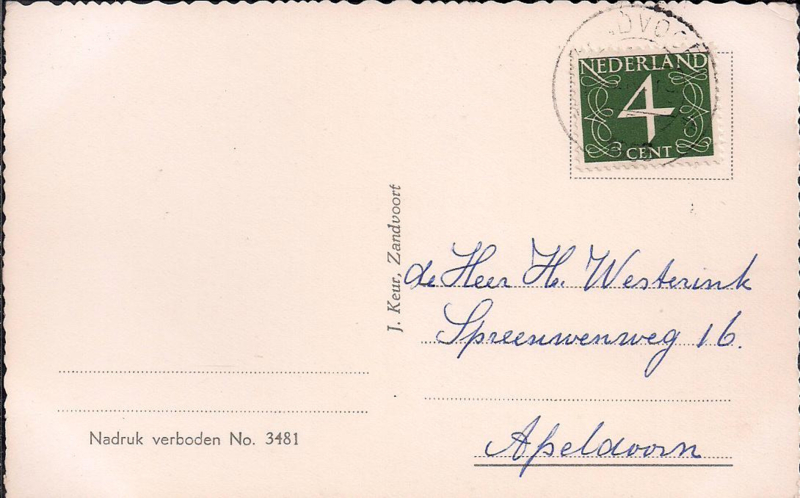 NEDERLAND
4
CENT
J. Keur, Zandvoort
de Heer H. Westerink
Spreeuwenweg 16.
Apeldoorn
Nadruk verboden No. 3481